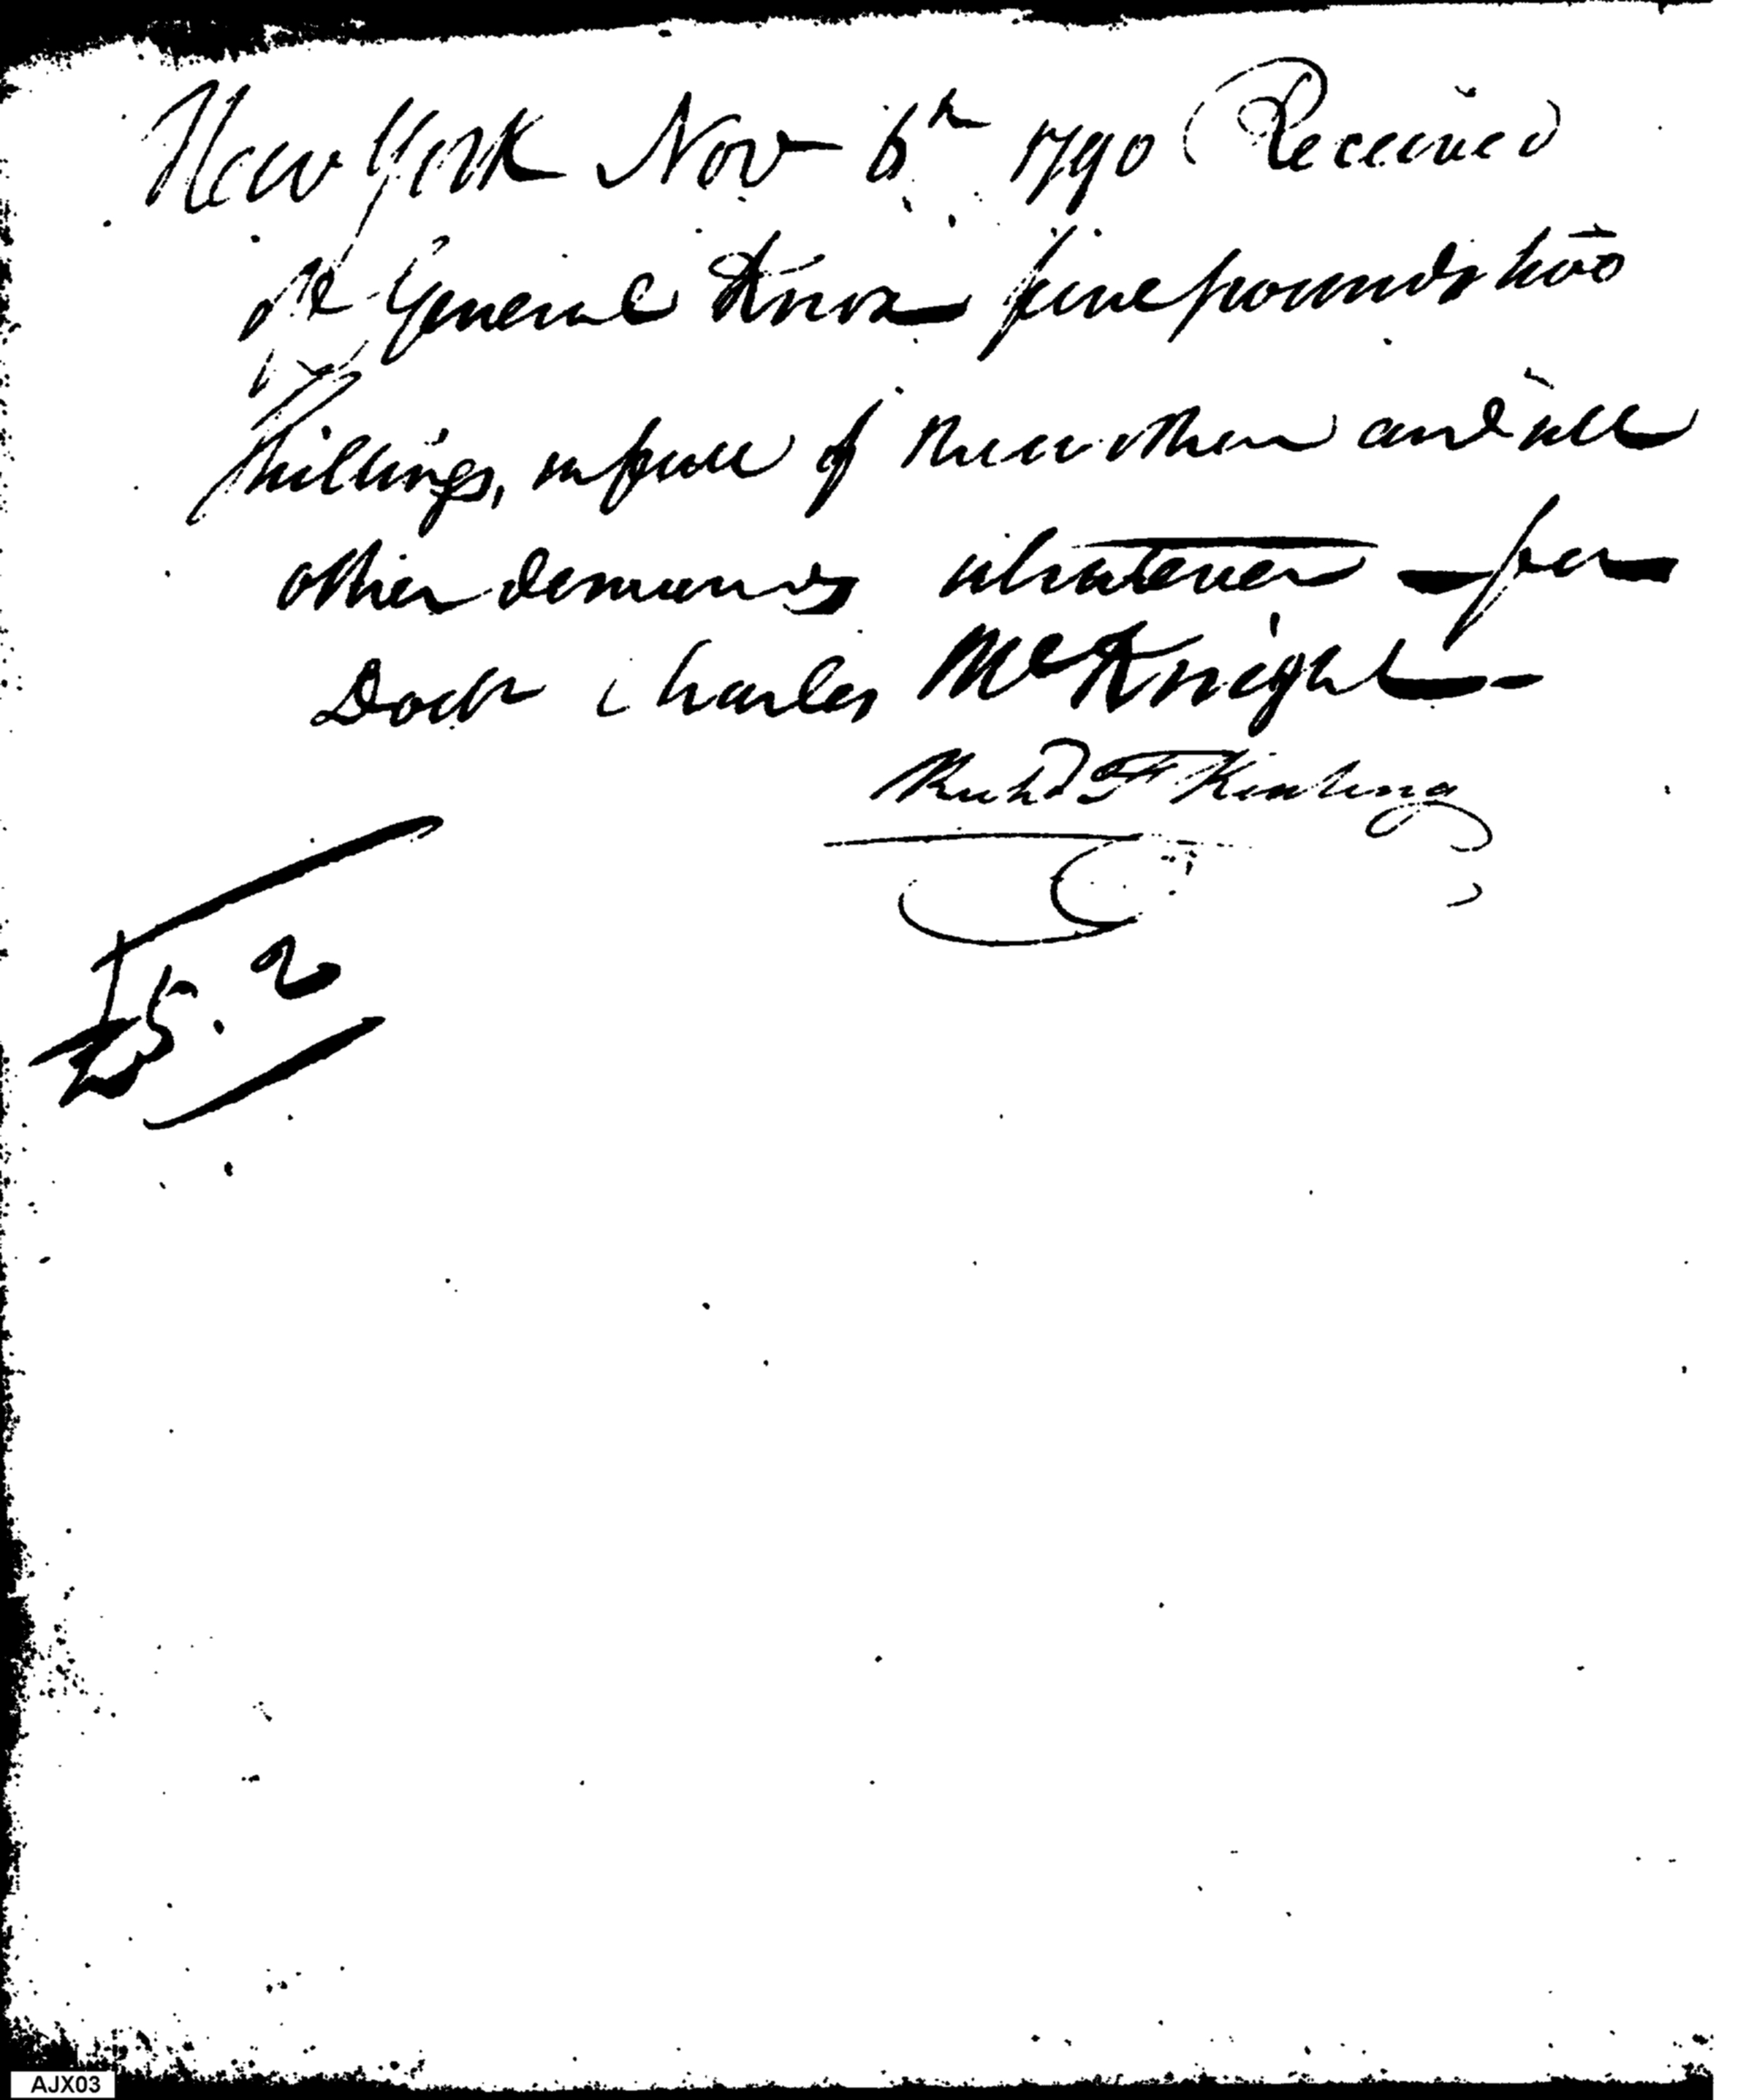 New York Nov 6th 1790 Received
of General Knox five pounds two
shillings, in full of this other and all
other demands whatever — for
Doctr Charles McKnight —
£5.2
AJX03